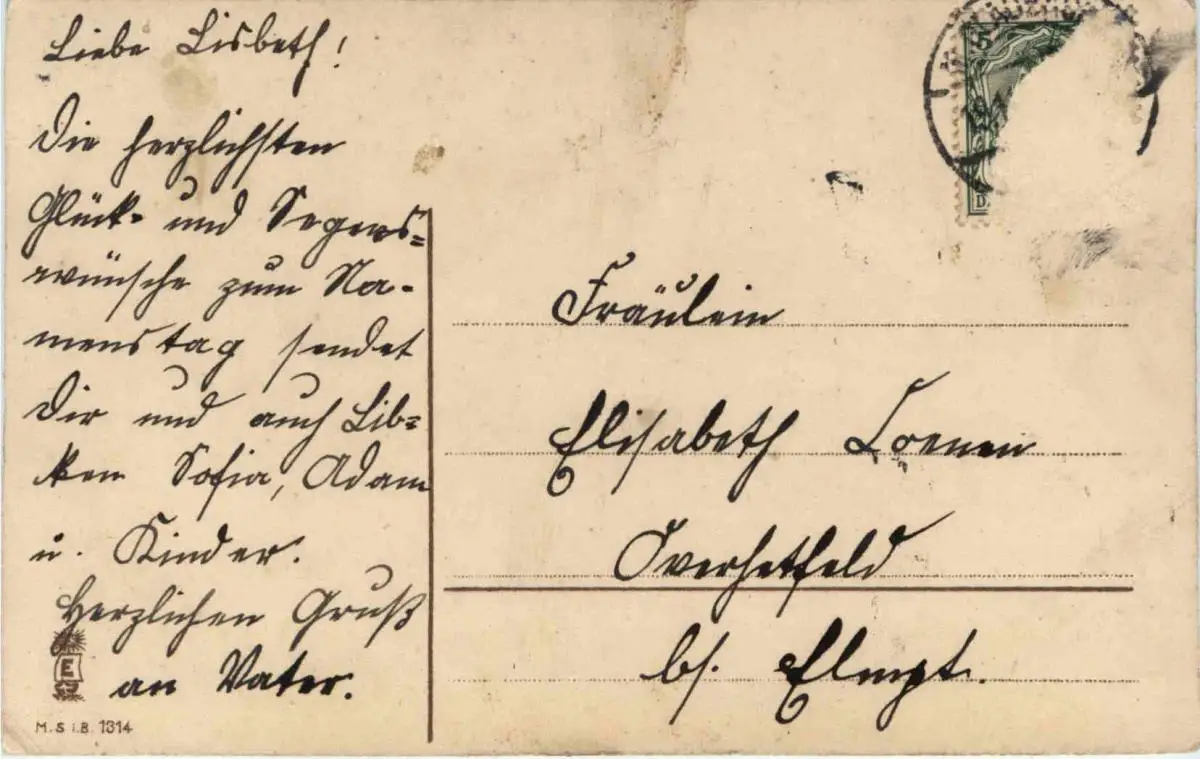 Liebe Lisbeth!
Die herzlichsten
Glück- und Segens=
wünsche zum Na-
menstag sendet
Dir und auch Lib=
ken Sofia, Adam
u. Kinder.
Herzlichen Gruß
an Vater.
E
M. S. i. B. 1314
5
D.
Fräulein
Elisabeth Loenen
Overhetfeld
bs. Elmpt.